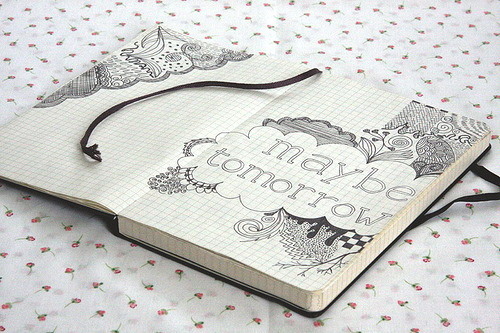 maybe
tomorrow